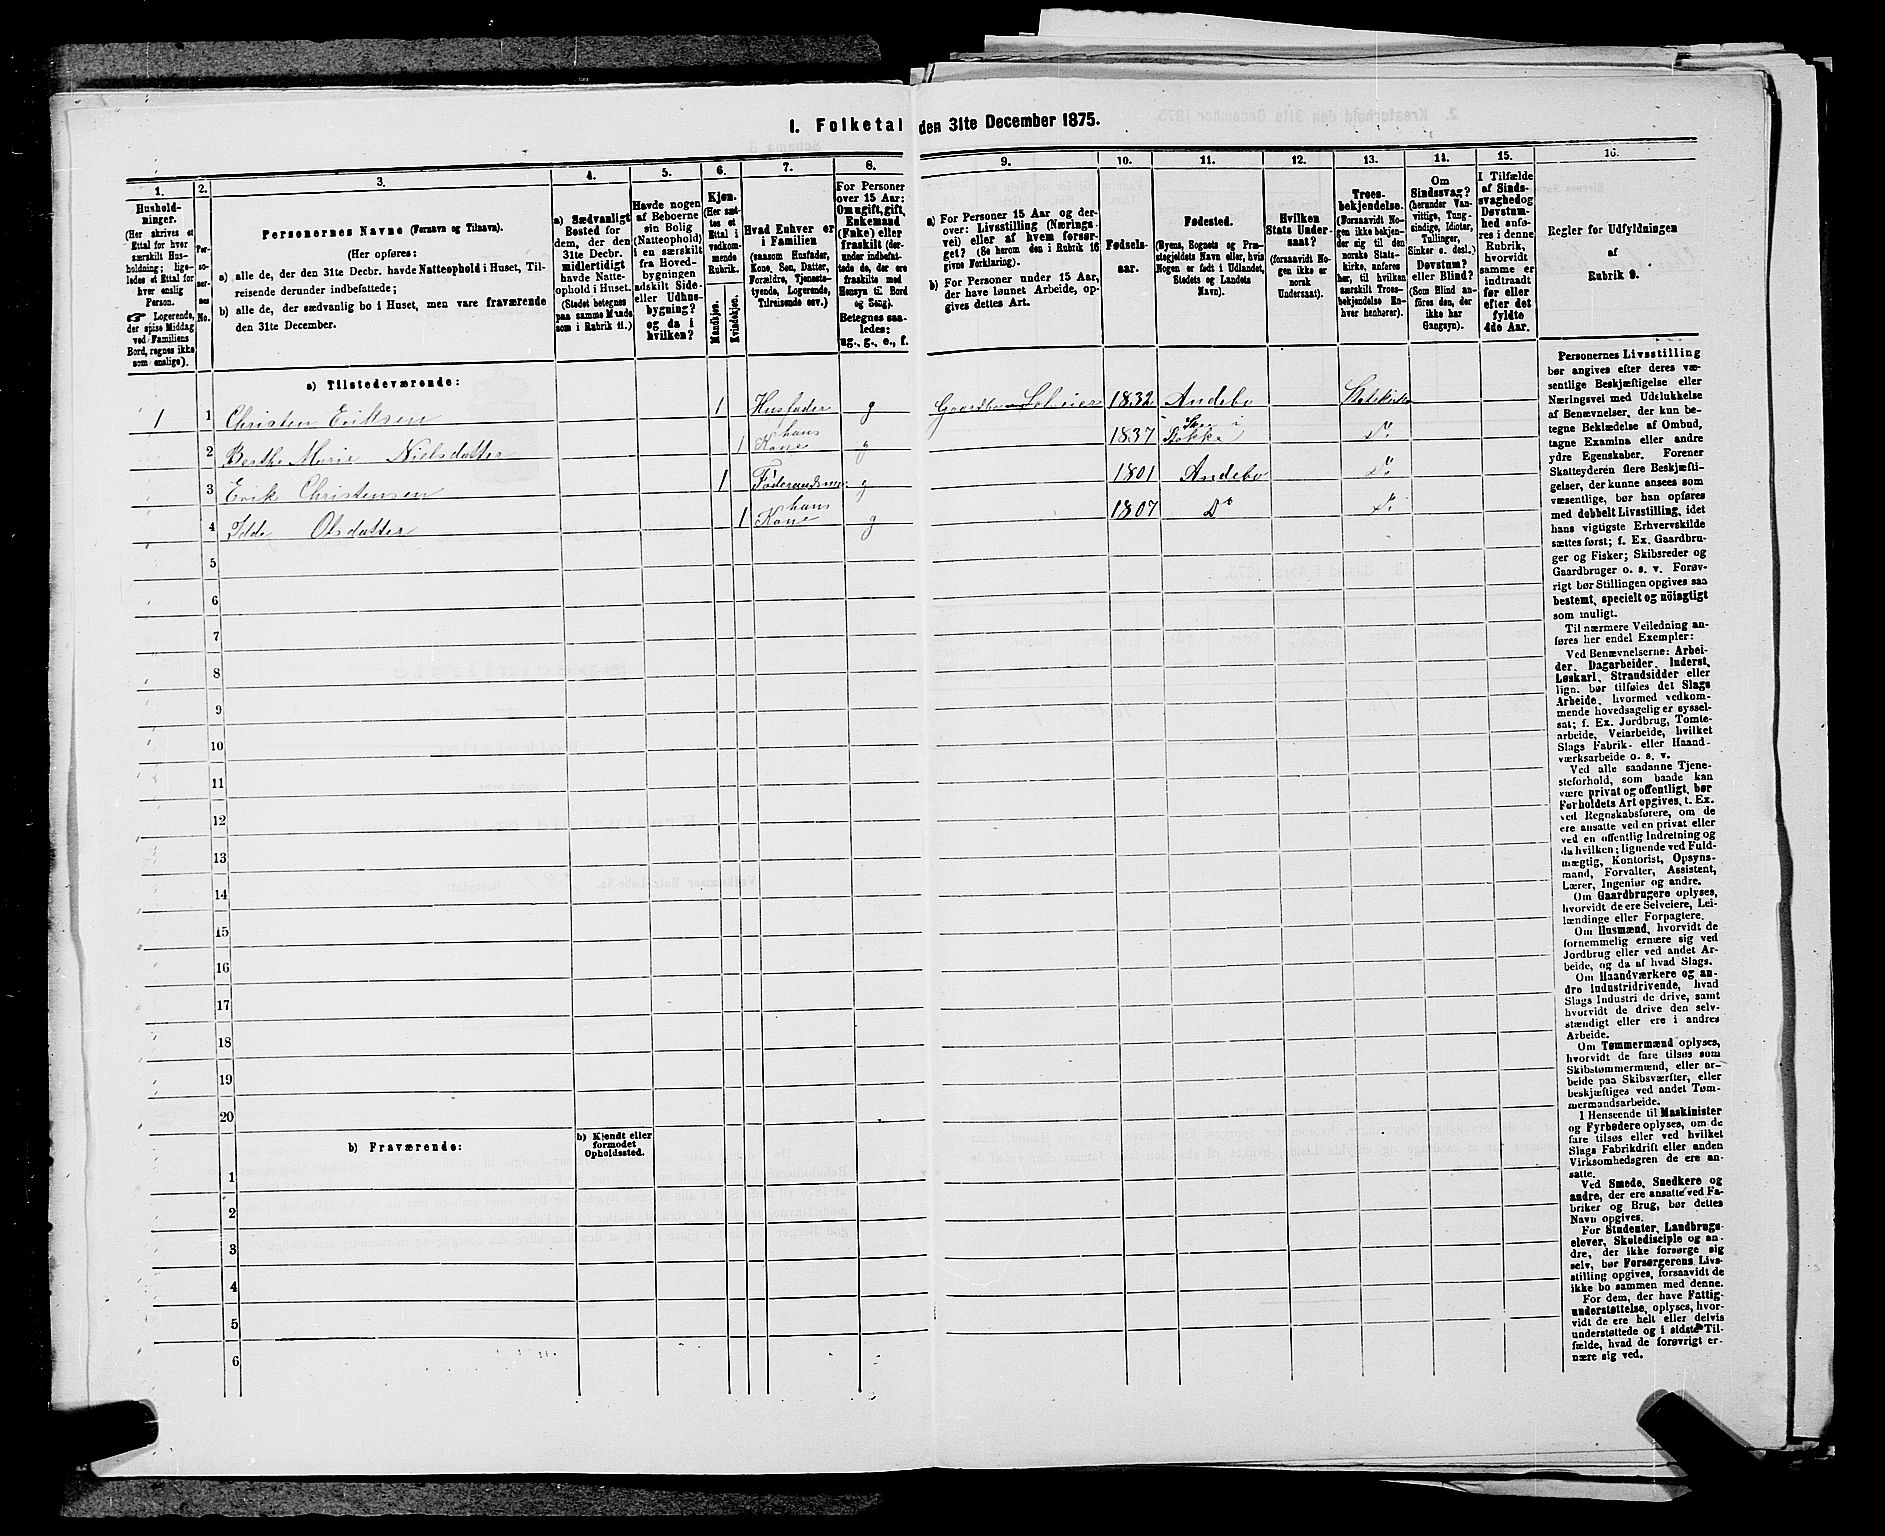 I. Folketal den 31te December 1875.
1.
2.
3.
4.
5.
6.
7.
8.
9.
10.
11.
12.
13.
14.
15.
16.
Hushold-
ninger.
(Her skrives et
Ettal for hver
særskilt Hus-
holdning; lige-
ledes et Ettal for
hver enslig
Person.
☞ Logerende,
der spise Middag
ved Familiens
Bord, regnes ikke
som enslige).
Per-
so-
ner-
nes
No.
Personernes Navne (Fornavn og Tilnavn).
(Her opføres:
a) alle de, der den 31te Decbr. havde Natteophold i Huset, Til-
reisende derunder indbefattede;
b) alle de, der sædvanlig bo i Huset, men vare fraværende
den 31te December.
a) Sædvanligt
Bosted for
dem, der den
31te Decbr.
midlertidigt
havde Natte-
ophold i Huset.
(Stedet betegnes
paa samme Maade
som i Rubrik 11.)
Havde nogen
af Beboerne
sin Bolig
(Natteophold)
i en særskilt
fra Hoved-
bygningen
adskilt Side-
eller Udhus-
bygning?
og da i
hvilken?
Kjøn.
(Her sæt-
tes et
Ettal i
vedkom-
mende
Rubrik.
Mandkjøn.
Kvindekjøn.
Hvad Enhver er
i Familien
(saasom Husfader,
Kone, Søn, Datter,
Forældre, Tjeneste-
tyende, Logerende,
Tilreisende osv.)
For Personer
over 15 Aar:
Om ugift, gift,
Enkemand
(Enke) eller
fraskilt (der-
under indbefat-
tede de, der ere
fraskilte med
Hensyn til Bord
og Seng).
Betegnes saa-
ledes:
ug., g., e., f.
a) For Personer 15 Aar og der-
over: Livsstilling (Nærings-
vei) eller af hvem forsør-
get? (Se herom den i Rubrik 16
givne Forklaring).
b) For Personer under 15 Aar,
der have lønnet Arbeide, op-
gives dettes Art.
Fødsels-
aar.
Fødested.
(Byens, Sognets og Præ-
stegjeldets Navn eller, hvis
Nogen er født i Udlandet,
Stedets og Landets
Navn).
Hvilken
Stats Under-
saat?
(foraavidt No-
gen ikke er
norsk
Undersaat).
Troes-
bekjendelse.
(Forsaavidt No-
gen ikke bekjen-
der sig til den
norske Stats-
kirke, anføres
her, til hvilken
særskilt Troes-
bekjendelse En-
hver henhører).
Om
Sindssvag?
(herunder Van-
vittige, Tung-
sindige, Idioter,
Tullinger,
Sinker o. desl.)
Døvstum?
eller Blind?
(Som Blind an-
føres den, der
ikke har
Gangsyn).
I Tilfælde
af Sinds-
svaghed og
Døvstum-
hed anfø-
res i denne
Rubrik,
hvorvidt
samme er
indtraadt
før eller
efter det
fyldte
4de Aar.
Regler for Udfyldningen
af
Rubrik 9.
a) Tilstedeværende:
1 1 Christen Eriksen 1 Husfader g Gaardbruger Selveier 1832 Andebo Statskirke
2 Berthe Marie Nielsdatter 1 hans Kone g 1837 Stokke Do
3 Erik Christensen 1 Føderaadsm. g 1801 Andebo Do
4 Idde Olsdatter 1 hans Kone g 1807 Do Do
5
6
7
8
9
10
11
12
13
14
15
16
17
18
19
20
b) Fraværende:
b) Kjendt eller
formodet
Opholdssted.
1
2
3
4
5
6
Personernes Livsstilling
bør angives efter deres væ-
sentlige Beskjæftigelse eller
Næringsvei med Udelukkelse
af Benævnelser, der kun be-
tegne Beklædelse af Ombud,
tagne Examina eller andre
ydre Egenskaber. Forener
Skatteyderen flere Beskjæfti-
gelser, der kunne ansees som
væsentlige, bør han opføres
med dobbelt Livsstilling, idet
hans vigtigste Erhvervskilde
sættes først; f. Ex. Gaardbru-
ger og Fisker; Skibsreder og
Gaardbruger o. s. v. Forøv-
rigt bør Stillingen opgives saa
bestemt, specielt og nöiagtigt
som muligt.
Til nærmere Veiledning an-
føres her endel Exempler:
Ved Benævnelserne: Arbei-
der, Dagarbeider, Inderst,
Løskarl, Strandsidder eller
lign. bør tilføies det Slags
Arbeide, hvormed vedkom-
mende hovedsagelig er syssel-
sat; f. Ex. Jordbrug, Tomte-
arbeide, Veiarbeide, hvilket
Slags Fabrik- eller Haand-
værksarbeide o. s. v.
Ved alle saadanne Tjene-
steforhold, som baade kan
være privat og offentligt, bør
Forholdets Art opgives, t. Ex.
ved Regnskabsførere, om de
ere ansatte ved en privat eller
ved en offentlig Indretning og
da hvilken; lignende ved Fuld-
mægtig, Kontorist, Opsyns-
mand, Forvalter, Assistent,
Lærer, Ingeniør og andre.
Om Gaardbrugere oplyses,
hvorvidt de ere Selveiere, Lei-
lændinge eller Forpagtere.
Om Husmænd, hvorvidt de
fornemmelig ernære sig ved
Jordbrug eller ved andet Ar-
beide, og da af hvad Slags.
Om Haandværkere og an-
dre Industridrivende, hvad
Slags Industri de drive, samt
hvorvidt de drive den selv-
stændigt eller ere i andres
Arbeide.
Om Tømmermænd oplyses,
hvorvidt de fare tilsøs som
Skibstømmermænd, eller ar-
beide paa Skibsværfter, eller
beskjæftiges ved andet Tøm-
mermandsarbeide.
I Henseende til Maskinister
og Fyrbødere oplyses, om de
fare tilsøs eller ved hvilket
Slags Fabrikdrift eller anden
Virksomhedsgren de ere an-
satte.
Ved Smede, Snedkere og
andre, der ere ansatte ved Fa-
briker og Brug, bør dettes
Navn opgives.
For Studenter, Landbrugs-
elever, Skoledisciple og an-
dre, der ikke forsørge sig
selv, bør Forsørgerens Livs-
stilling opgives, forsaavidt de
ikke bo sammen med denne.
For dem, der have Fattig-
understøttelse, oplyses, hvor-
vidt de ere helt eller delvis
understøttede og i sidste Til-
fælde, hvad de forøvrigt er-
nære sig ved.